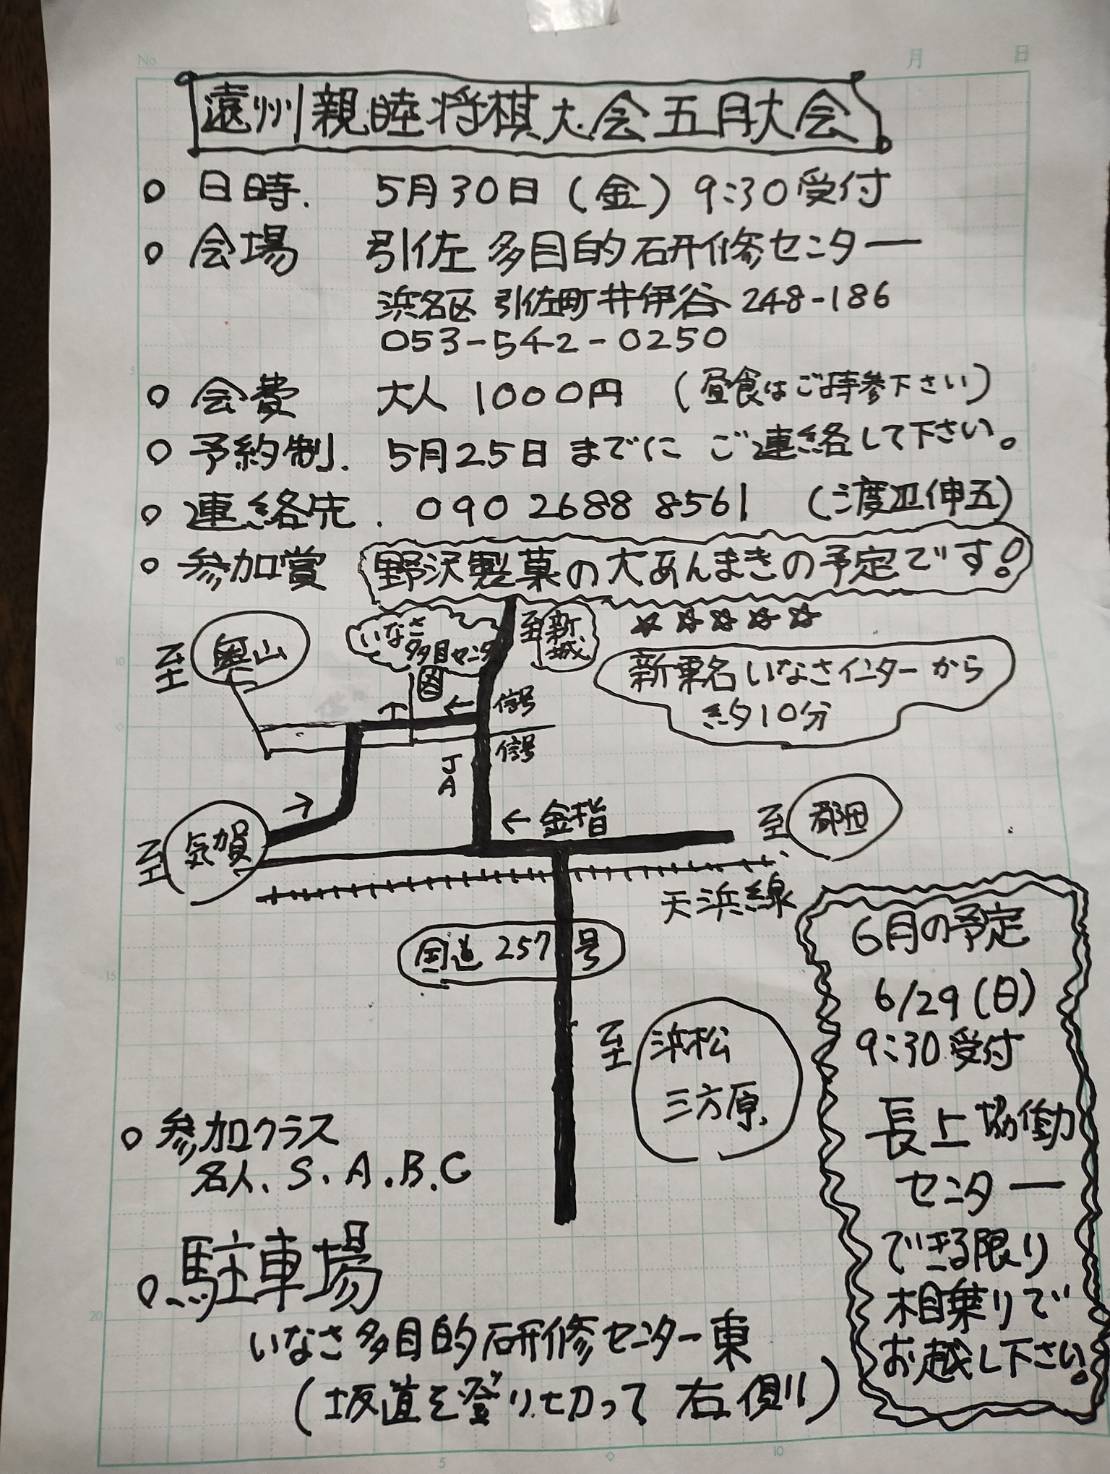 遠州親睦将棋大会五月大会
○ 日時. 5月30日(金) 9:30受付
○ 会場 引佐多目的研修センター
浜名区 引佐町井伊谷 248-186
053-542-0250
○ 会費 大人 1000円 (昼食はご持参下さい)
○ 予約制. 5月25日までに ご連絡して下さい。
○ 連絡先. 090 2688 8561 (渡辺伸五)
○ 参加賞 野沢製菓の大あんまきの予定です!
☆☆☆☆☆
至 奥山
いなさ
多目センター
至 新城
新東名いなさインターから
約10分
← 信号
信号
JA
← 金指
至 都田
至 気賀
天浜線
国道257号
至 浜松
三方原.
6月の予定
6/29(日)
9:30受付
長上協働
センター
できる限り
相乗りで
お越し下さい。
○ 参加クラス
名人、S、A、B、C
○ 駐車場
いなさ多目的研修センター東
(坂道を登り切って 右側)